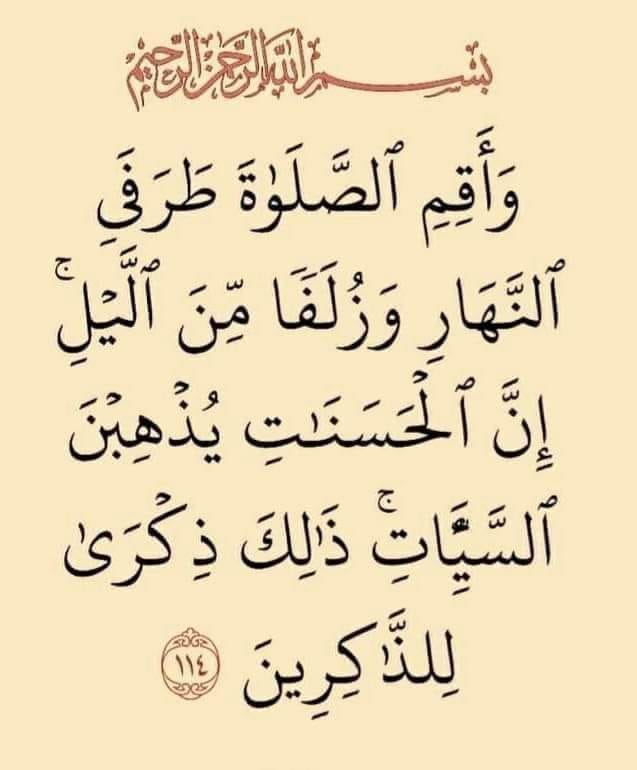 بسم الله الرحمن الرحيم
وَأَقِمِ ٱلصَّلَوٰةَ طَرَفَىِ
ٱلنَّهَارِ وَزُلَفًا مِّنَ ٱلَّيْلِ ۚ
إِنَّ ٱلْحَسَنَـٰتِ يُذْهِبْنَ
ٱلسَّيِّـَٔاتِ ۚ ذَٰلِكَ ذِكْرَىٰ
لِلذَّٰكِرِينَ ١١٤